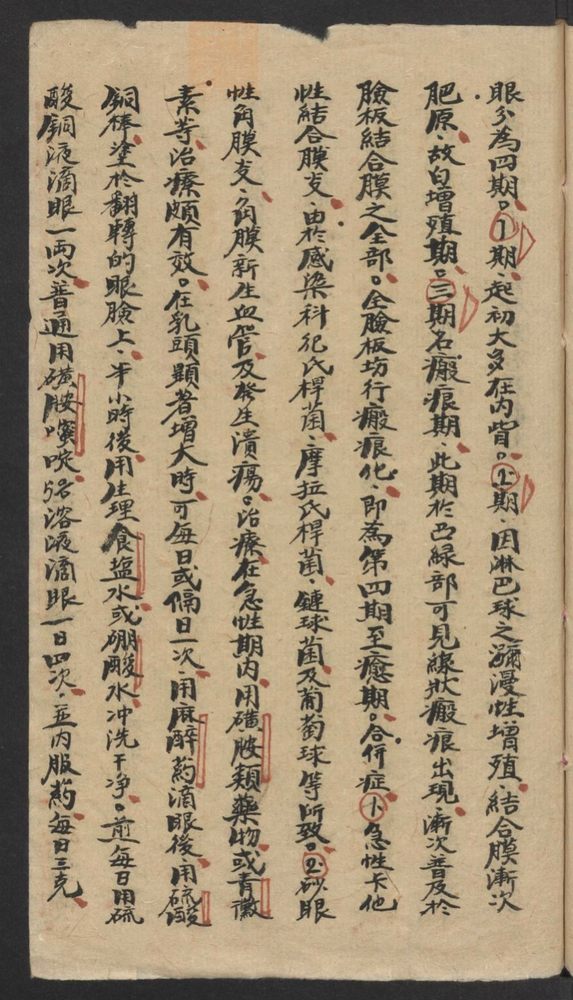 眼分為四期。①期、起初大多在內眥。②期、因淋巴球之瀰漫性增殖、結合膜漸次
肥厚、故曰增殖期。三期名瘢痕期、此期於凸緣部可見線狀瘢痕出現、漸次普及於
臉板結合膜之全部。全臉板坊行瘢痕化、即為第四期至癒期。合併症①急性卡他
性結合膜炎、由於感染科紀氏桿菌、摩拉氏桿菌、鏈球菌及葡萄球等所致。②砂眼
性角膜炎、角膜新生血管、及發生潰瘍。治療在急性期內、用磺胺類藥物或青黴
素等治療頗有效。在乳頭顯著增大時、可每日或隔日一次、用麻醉葯滴眼後、用硫酸
銅棒塗於翻轉的眼臉上、半小時後、用生理食盐水或硼酸水冲洗干净。前每日用硫
酸銅液滴眼一兩次、普通用磺胺噻唍5%溶液滴眼一日四次、並內服葯每日三克、